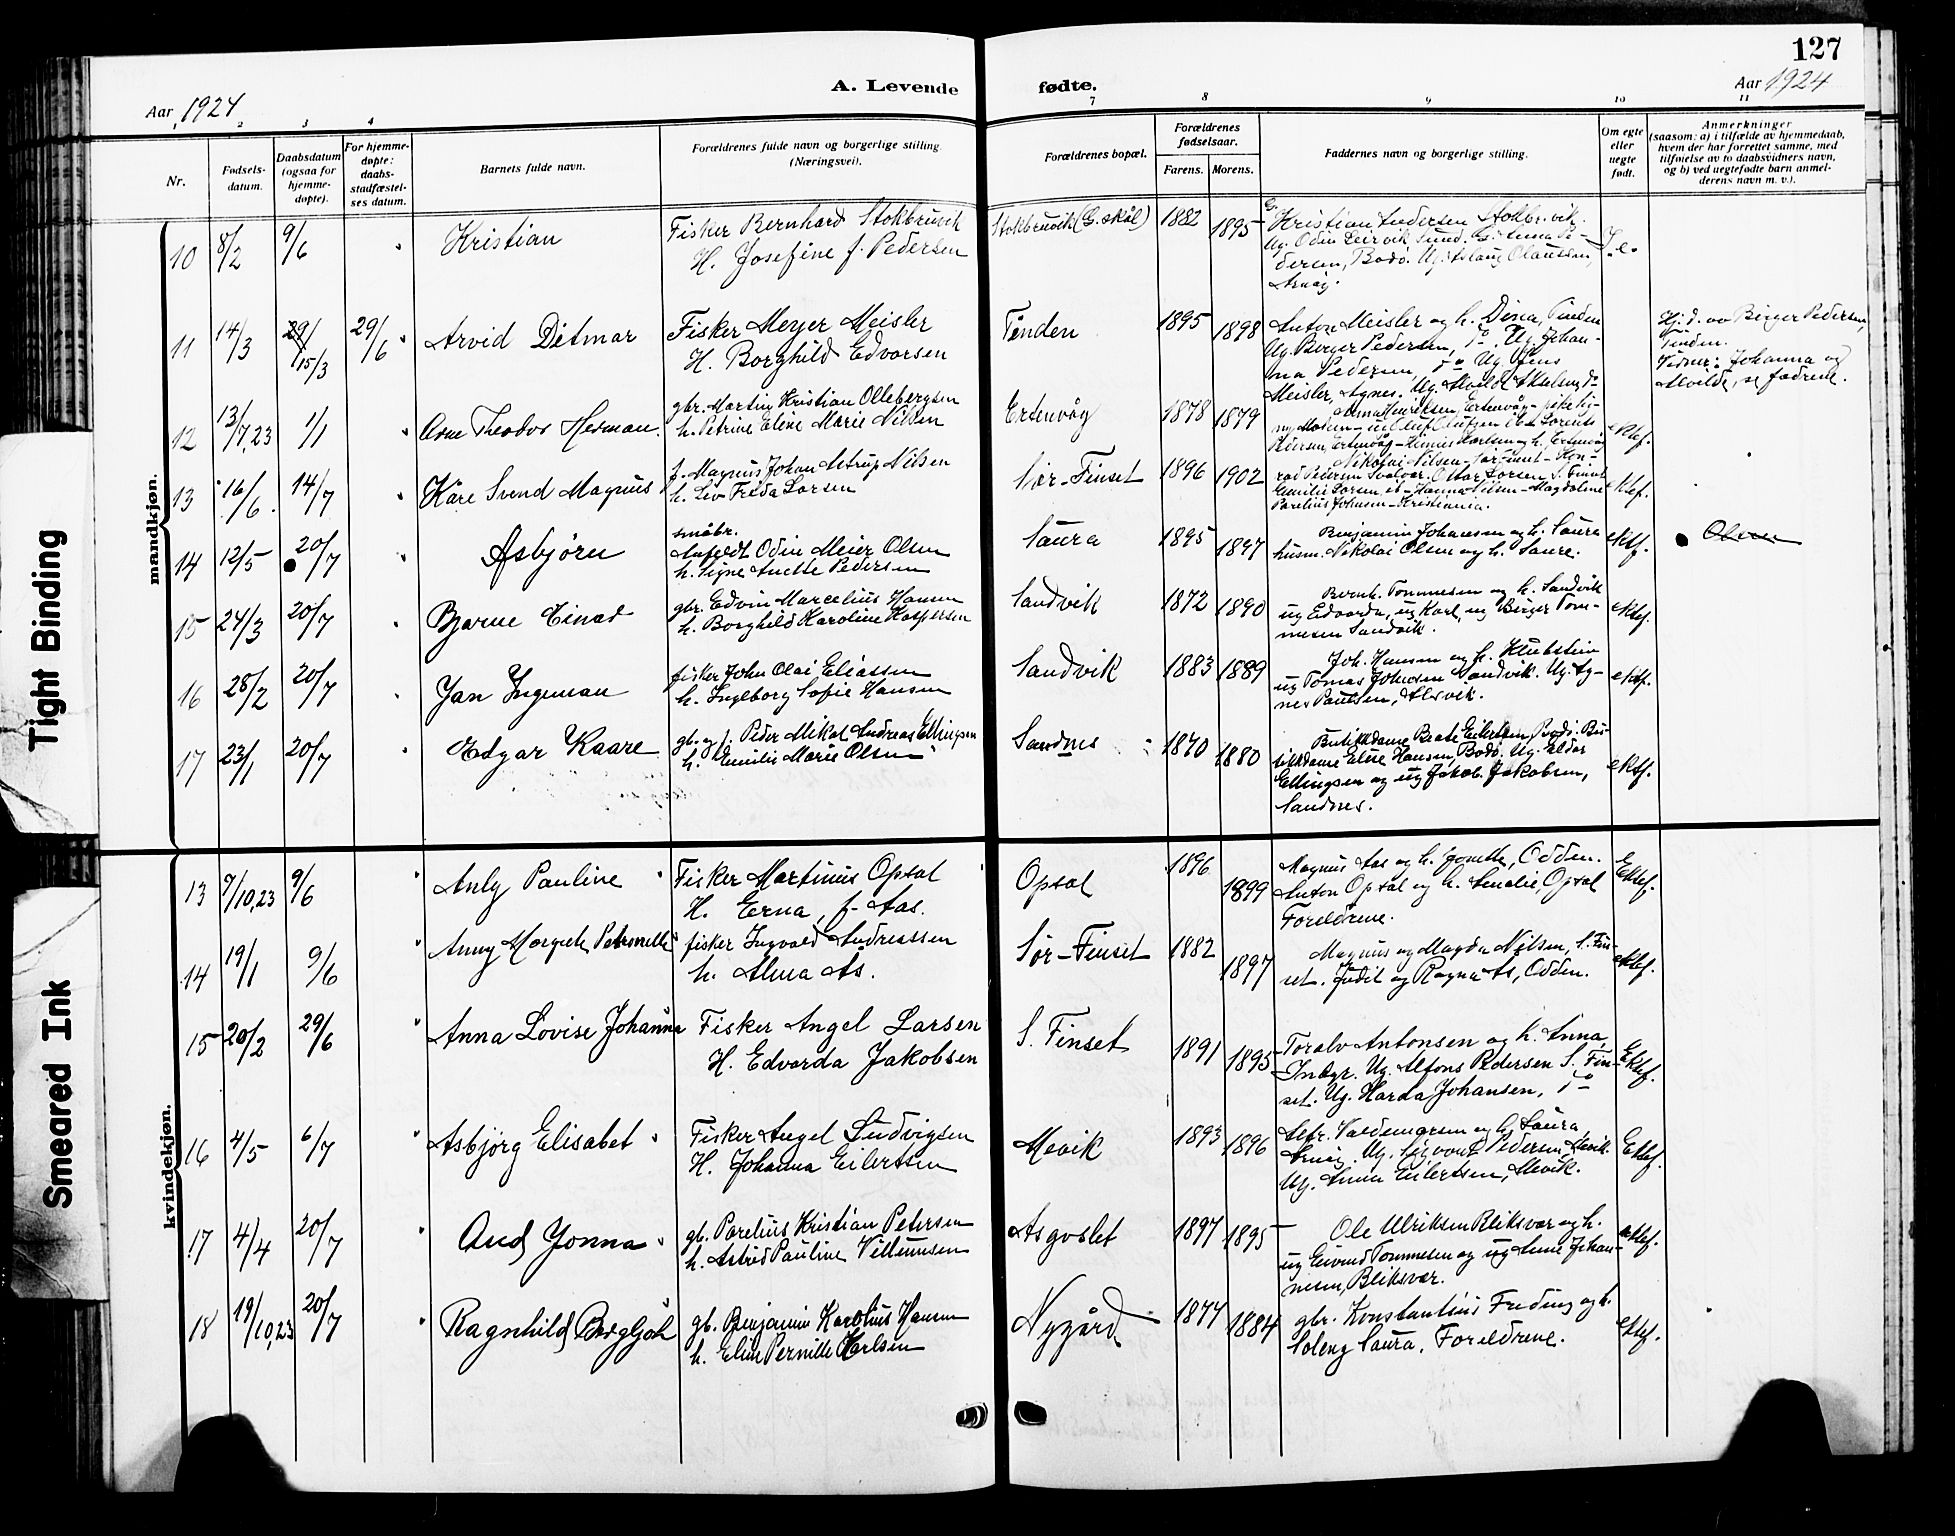 127
A. Levende fødte.
Aar 1924
Aar 1924
1 2 3 4 7 8 9 10 11
Nr.
Fødsels-
datum.
Daabsdatum
(ogsaa for
hjemme-
døpte).
For hjemme-
døpte:
daabs-
stadfæstel-
ses datum.
Barnets fulde navn.
Forældrenes fulde navn og borgerlige stilling.
(Næringsvei).
Forældrenes bopæl.
Forældrenes
fødselsaar.
Farens. Morens.
Faddernes navn og borgerlige stilling.
Om egte
eller
uegte
født.
Anmerkninger
(saasom: a) i tilfælde av hjemmedaab,
hvem der har forrettet samme, med
tilføielse av to daabsvidners navn,
og b) ved uegtefødte barn anmel-
derens navn m. v.).
mandkjøn.
10 8/2 9/6 Kristian
Fisker Bernhard Stokbruvik
H. Josefine f. Pedersen
Stokbruvik (G.skål) 1882 1895
G. Kristian Andersen Stokbruvik.
Ug. Odin Leirvik Sund. G. Anna Pe-
dersen, Bodø. Ug. Aslaug Olaussen,
Arnøy.
11 14/3 29/ 15/3 29/6 Arvid Ditmar
Fisker Meyer Meisler
H. Borghild Edvarsen
Tinden 1895 1898
Anton Meisler og h. Dina, Tinden
Ug. Berger Pedersen, do. Ug. Johan-
na Pedersen, do Ug. Jens
Meisler, Agnes. Ug. Alvilde Akselsen, do
Hj.d. av Birger Pedersen,
Tinden.
Vidner: Johanna og
Alvilde, se fadrene.
12 13/7,23 1/1 Arne Theodor Herman
gbr. Martin Kristian Ollebergsen
h. Petrine Eline Marie Nilsen
Ertenvåg 1878 1879
Anna Henriksen, Ertenvåg
ektef.
13 16/6 14/7 Kåre Svend Magnus
f. Magnus Johan Astrup Nilsen
h. Lev Freda Larsen
Sør-Finset 1896 1902
Nikolai Nilsen
Emilie Larsen, Hanna Nilsen - Magdaline
Parelius Johnsen - Kristiania.
ektef.
14 12/5 20/7 Asbjørn
småbr.
Anfeldt Odin Meier Olsen
h. Signe Anette Pedersen
Saura 1895 1897
Benjamin Johansen og h. Saura
husm. Nikolai Olsen og h. Saura.
ektf.
Olsen
15 24/3 20/7 Bjarne Einar
gbr. Edvin Marcelius Hansen
h. Borghild Karoline Kaspersen
Sandvik 1872 1890
Bernh. Tommesen og h. Sandvik
ug Edvarda, ug Karl, ug Birger Tom-
mesen Sandvik.
ektef.
16 28/2 20/7 Jan Ingeman
fisker John Olai Eliassen
h. Ingeborg Sofie Hansen
Sandvik 1883 1889
Joh. Hansen og h. Klubstein
ug Tomas Johnsen Sandvik. Ug. Ag-
nes Paulsen, Alsvik.
ektf.
17 23/1 20/7 Edgar Kaare
gb. og f. Peder Mikal Andreas Ellingsen
h. Emilie Marie Olsen
Sandnes 1870 1880
Butikkdame Beate Eilertsen, Bodø. Bu-
tikkdame Elise Hansen, Bodø. Ug. Eldar
Ellingsen og ug Jakob Jakobsen,
Sandnes.
ektf.
kvindekjøn.
13 7/10,23 9/6 Anly Pauline
Fisker Martinus Opsal
H. Erna, f. Aas.
Opsal 1896 1899
Magnus Aas og h. Jonette, Odden.
Anton Opsal og h. Amalie, Opsal
Foreldrene.
Ektef.
14 19/1 9/6 Anny Margrete Petronelle
fisker Ingvald Andreassen
h. Alma Ås.
Sør-Finset 1882 1897
Magnus og Magda Nilsen, S. Fin-
set. Judit og Ragna As, Odden.
ektef.
15 20/2 29/6 Anna Lovise Johanna
Fisker Angel Larsen
H. Edvarda Jakobsen
S. Finset 1891 1895
Toralv Antonsen og h. Anna,
Indyr. Ug. Alfons Pedersen S. Fin-
set. Ug. Harda Johansen, do
Ektef.
16 4/5 6/7 Asbjørg Elisabet
Fisker Angel Ludvigsen
H. Johanna Eilertsen
Mevik 1893 1896
Alfr. Valdemarsen og h. Laura,
Arnøy. Ug. Sigvart Pedersen, Mevik.
Ug. Anna Eilertsen, Mevik.
Ektef.
17 4/4 20/7 Aud Jonna
gb. Parelius Kristian Petersen
h. Astrid Pauline Villumsen
Asgoslet 1897 1895
Ole Ulriksen Bliksvær og h.
ug Eivind Tommesen og ug Anne Johan-
nesen, Bliksvær.
ektef.
18 19/10,23 20/7 Ragnhild Bergljot
gb. Benjamin Karolius Hansen
h. Eline Pernille Karlsen
Nygård 1877 1884
gbr. Konstantius Freding og h.
Soleng Saura. Foreldrene.
ektef.
Tight Binding
Smeared Ink